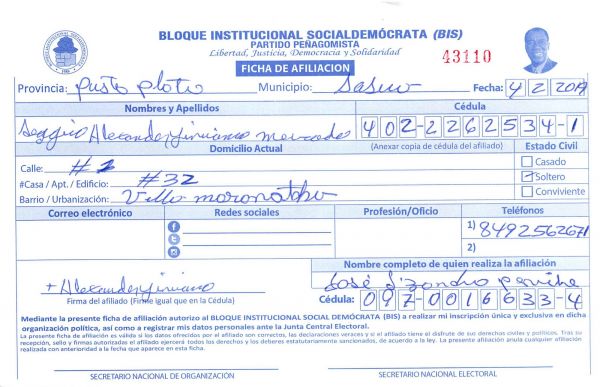 BLOQUE INSTITUCIONAL SOCIALDEMÓCRATA (BIS)
PARTIDO PEÑAGOMISTA
Libertad, Justicia, Democracia y Solidaridad
43110
FICHA DE AFILIACION
Provincia: Pusto Plata Municipio: Sosua Fecha: 4/2/2019
Nombres y Apellidos Cédula
Alexander Jiminian Mercedes 402-2262534-1
Domicilio Actual (Anexar copia de cédula del afiliado) Estado Civil
Calle: #2 Casado
#Casa / Apt. / Edificio: #32 Soltero
Barrio / Urbanización: Villa Conviviente
Correo electrónico Redes sociales Profesión/Oficio Teléfonos
1) 8492562671
2)
Nombre completo de quien realiza la afiliación
+ Alexander Jiminian José
Firma del afiliado (Firme igual que en la Cédula) Cédula: 097-0016633-4
Mediante la presente ficha de afiliación autorizo al BLOQUE INSTITUCIONAL SOCIAL DEMÓCRATA (BIS) a realizar mi inscripción única y exclusiva en dicha
organización política, así como a registrar mis datos personales ante la Junta Central Electoral.
La presente ficha de afiliación es válida si los datos ofrecidos por el afiliado son correctos, las declaraciones veraces y si el afiliado tiene el disfrute de sus derechos civiles y políticos. Tras su
recepción, sello y firmas autorizadas el afiliado ejercerá todos los derechos y los deberes estatutariamente sancionados, de acuerdo a la ley. La presente afiliación anula cualquier afiliación
realizada con anterioridad a la fecha que aparece en esta ficha.
SECRETARIO NACIONAL DE ORGANIZACIÓN SECRETARIO NACIONAL ELECTORAL